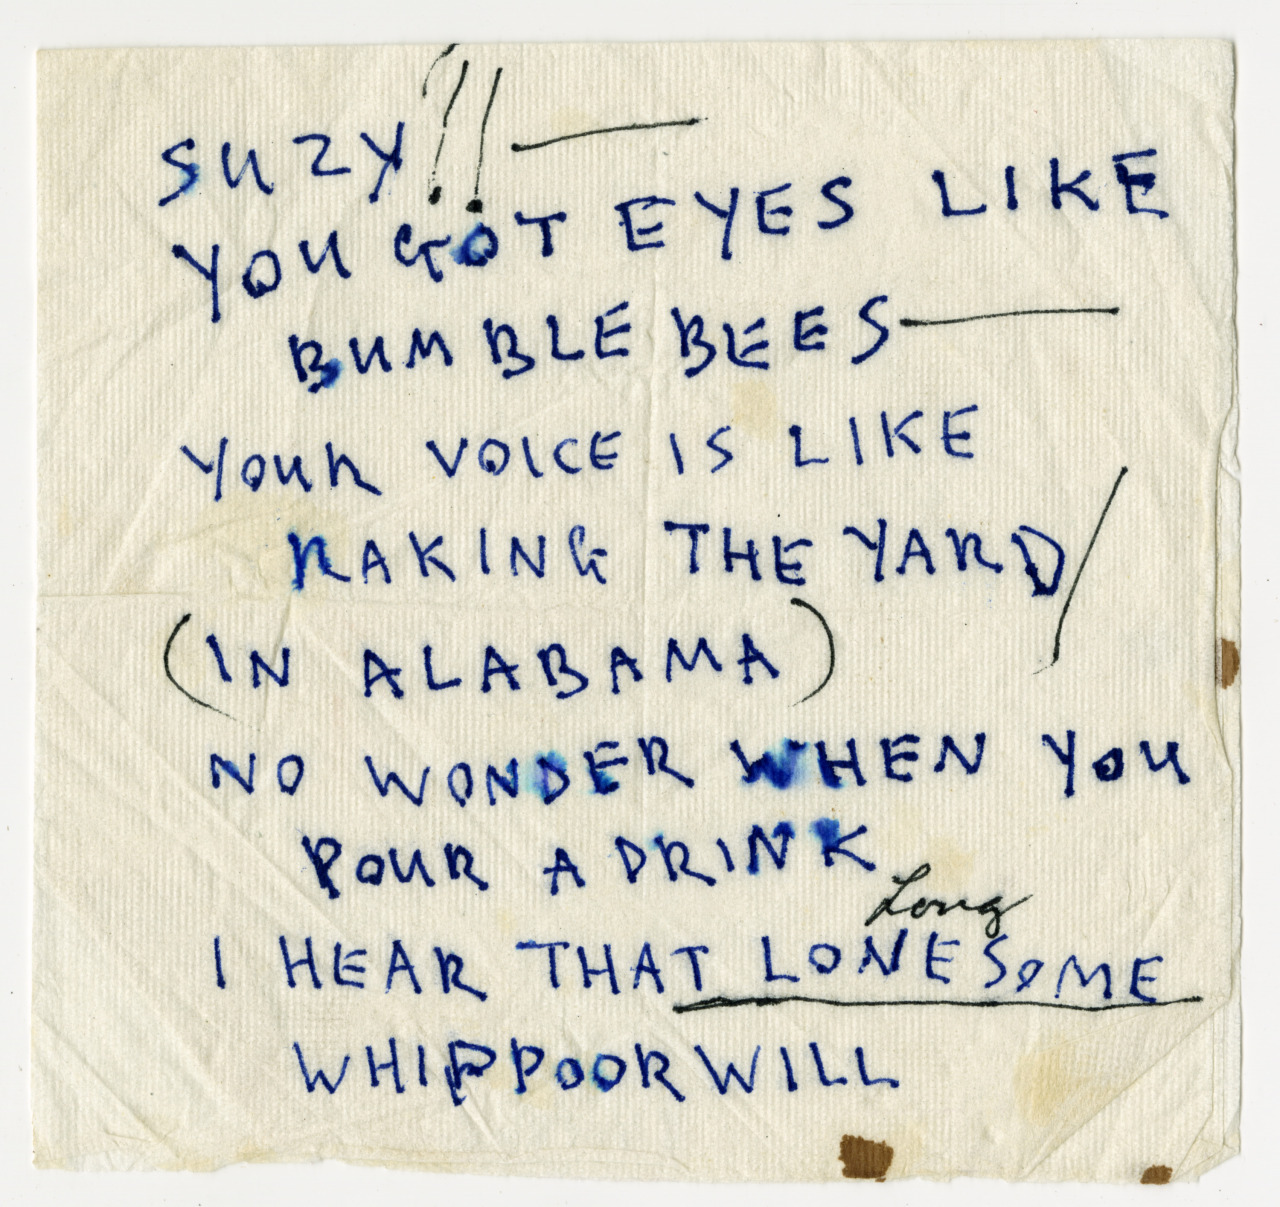 SUZY!! —
YOU GOT EYES LIKE
BUMBLE BEES —
YOUR VOICE IS LIKE
RAKING THE YARD /
(IN ALABAMA)
NO WONDER WHEN YOU
POUR A DRINK
Long
I HEAR THAT LONESOME
WHIPPOORWILL